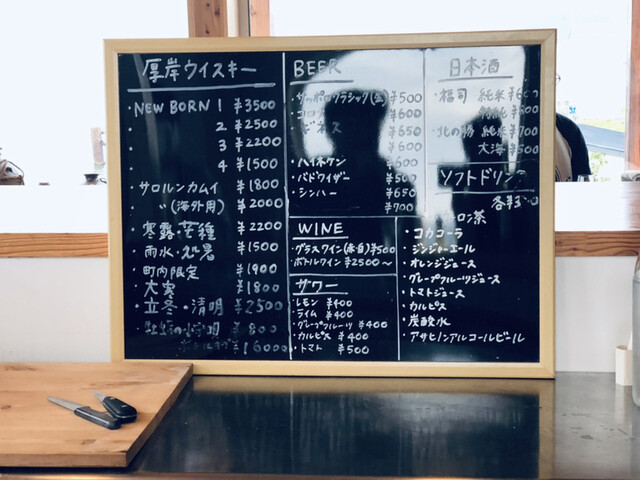 厚岸ウイスキー
NEW BORN 1 ¥3500
2 ¥2500
3 ¥2200
4 ¥1500
サロルンカムイ ¥1800
〃(海外用) ¥2000
寒露・芒種 ¥2200
雨水・処暑 ¥1500
町内限定 ¥1900
大寒 ¥1800
立冬・清明 ¥2500
¥800
¥16000
BEER
・サッポロクラシック(生) ¥500
¥600
・ギネス ¥650
¥600
・ハイネケン ¥600
・バドワイザー ¥500
・シンハー ¥650
¥700
WINE
・グラスワイン(赤・白) ¥500
・ボトルワイン ¥2500～
サワー
・レモン ¥400
・ライム ¥400
・グレープフルーツ ¥400
・カルピス ¥400
・トマト ¥500
日本酒
・福司 純米
・北の勝 純米 ¥700
大海 ¥500
ソフトドリンク
・ウーロン茶
・コカコーラ
・ジンジャーエール
・オレンジジュース
・グレープフルーツジュース
・トマトジュース
・カルピス
・炭酸水
・アサヒノンアルコールビール